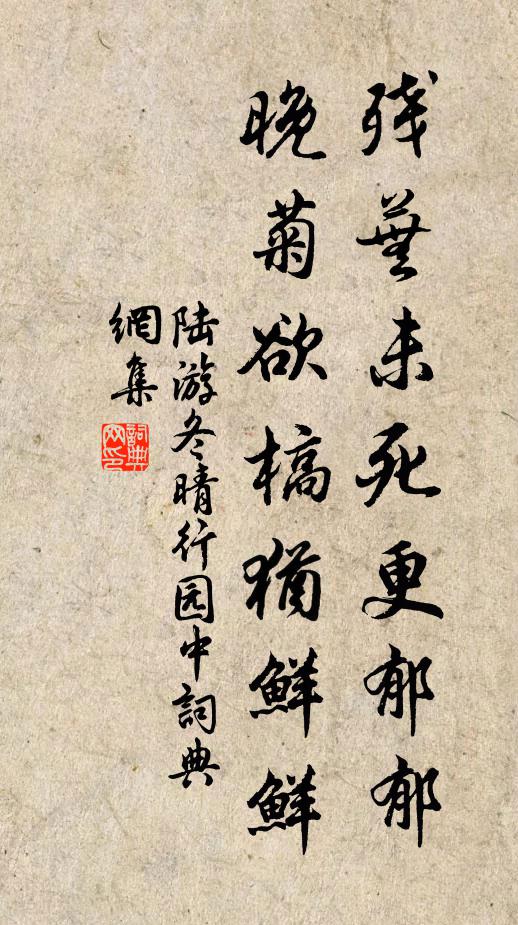 残芜未死更郁郁
晚菊欲槁犹鲜鲜
陆游冬晴行园中詞典
網集
詞典網印